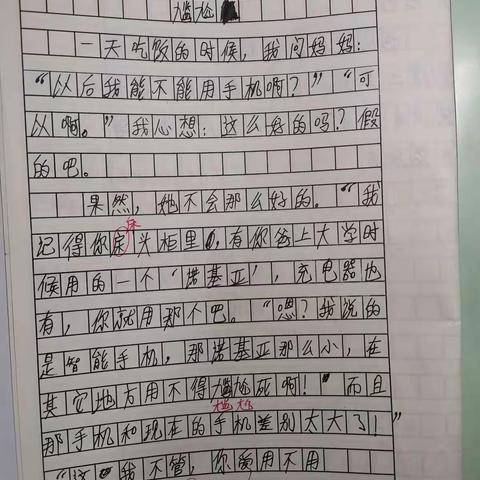 尴尬
一天吃饭的时候，我问妈妈：
“以后我能不能用手机啊？”“可
以啊。”我心想：这么好的吗？假
的吧。
果然，她不会那么好的。“我
记得你床头柜里，有你爸上大学时
床
候用的一个‘诺基亚’，充电器也
有，你就用那个吧。“嗯？我说的
是智能手机，那诺基亚那么小，在
其它地方用不得尴尬死啊！”而且
尴尬
那手机和现在的手机差别太大了！”
我不管，你爱用不用